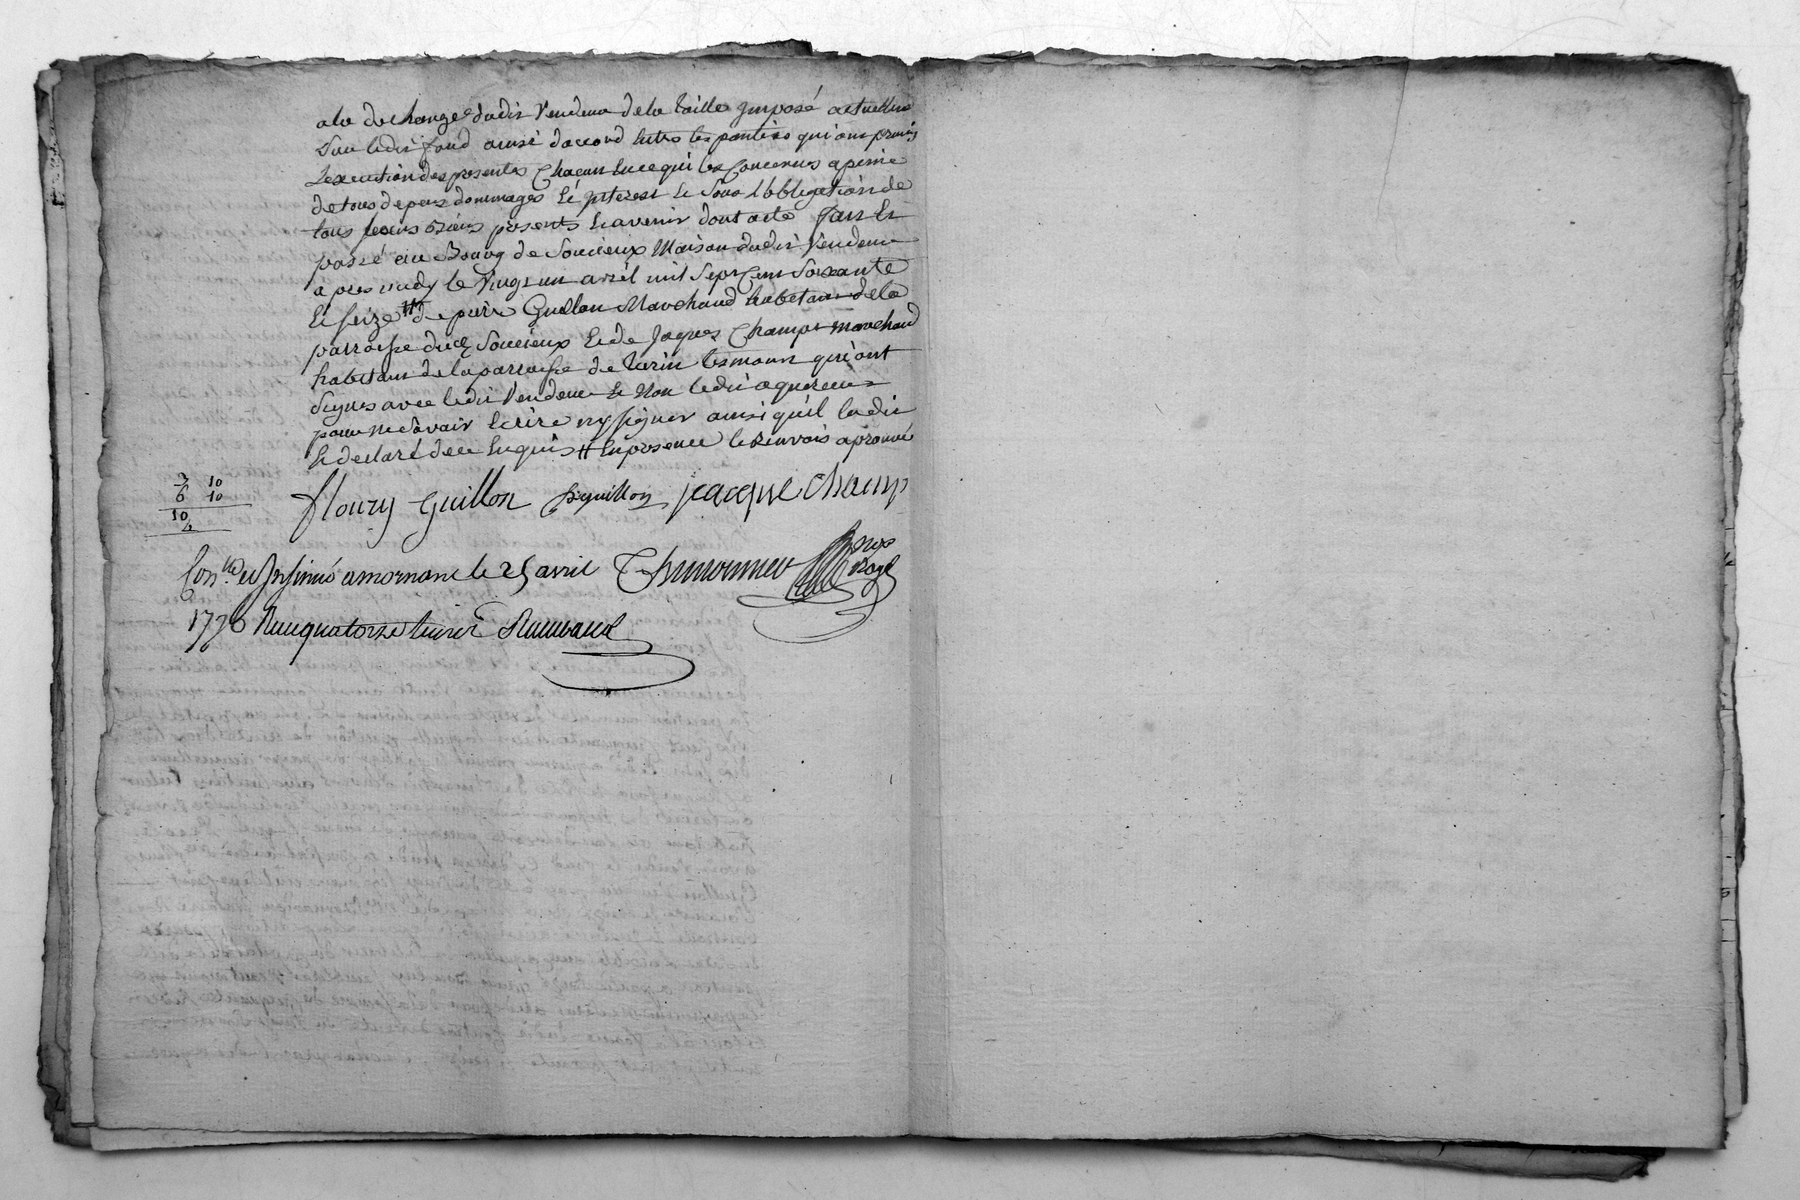 ala decharge dudit Vendeur dela taille imposé actuellem
Sur ledit fond ainsi daccord Entre les parties qui ont promis
Lexecution des presentes Chacun En ce qui les Concernes a peine
de tous depens dommages Et jnterest Et Sous lobbligation de
tous leurs biens présents Et avenir dont acte fait Et
passé au Bourg de Soucieux Maison dudit Vendeur
apres midy le Vingt un avril mil Sept Cent Soixante
Et seize # de pierre Guillon Marchand habitant dela
parroisse dudt Soucieux Et de Jaques Champt marchand
habitant de la parroisse de turin temoins qui ont
Signés avec ledit Vendeur Et Non ledit aquereur
pour ne Scavoir Ecrire ny signer ainsi quil la dit
Et declaré de ce Enquis # En presence le Renvois aprouvé
fleury Guillon pguillon jacque champ
7 10
6 10
10
4
Con.lé et Insinué a mornant le 25 avril
1776 Reçu quatorze livres
nore
Royal